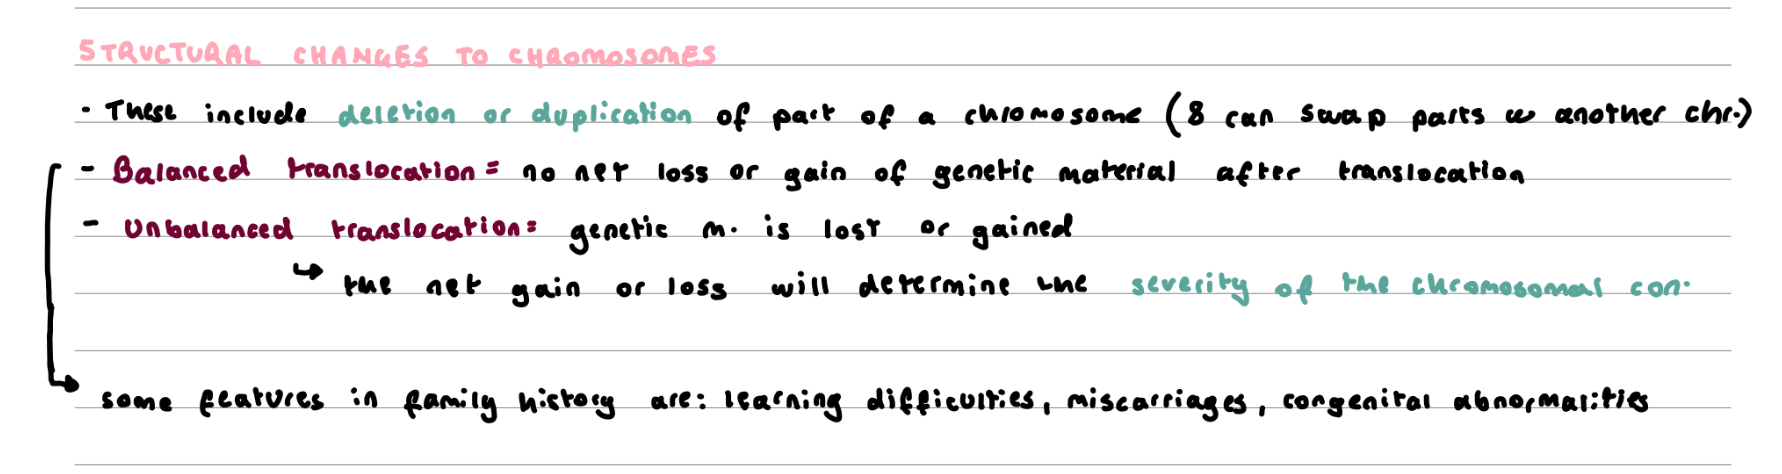 STRUCTURAL CHANGES TO CHROMOSOMES
- These include deletion or duplication of part of a chromosome (& can swap parts w another chr.)
- Balanced translocation = no net loss or gain of genetic material after translocation
- Unbalanced translocation = genetic m. is lost or gained
↳ the net gain or loss will determine the severity of the chromosomal con.
some features in family history are: learning difficulties, miscarriages, congenital abnormalities